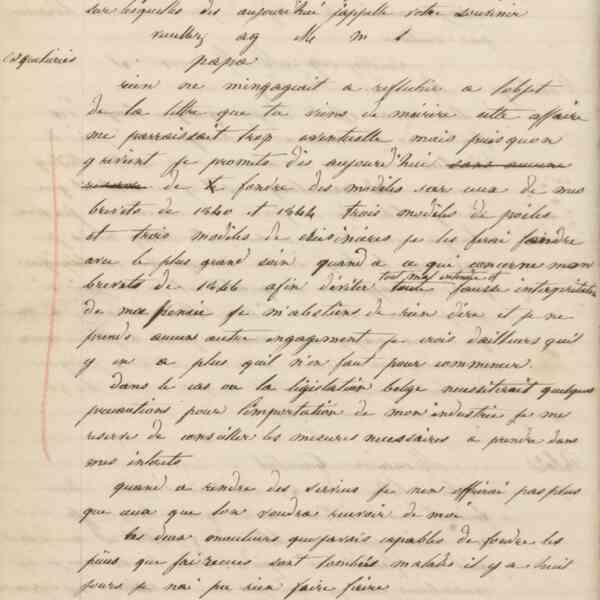 sur lesquelles des aujourd'hui j'appelle votre souvenir
veuillez ag Me m t
papa
rien ne m'ingagait a reflechir a l'objet
de la lettre que tu viens de m'écrire cette affaire
me parraissait trop eventuelle mais puisqu'on
y revient je promets dès aujourd'hui sans aucune
reserve de fondre des modèles sur ceux de mes
brevets de 1840 et 1844 trois modèles de poêles
et trois modèles de cuisinières je les ferai foindre
avec le plus grand soin quand a ce qui concerne mon
brevets de 1846 afin d'éviter toute fausse interprétation
tout mal entendu et
de ma pensée je m'abstiens de rien dire et je ne
prends aucun autre engagement je crois d'ailleurs qu'il
y en a plus qu'il n'en faut pour commencer.
dans le cas ou la législation belge necessiterait quelques
precautions pour l'importation de mon industrie je me
reserve de conseiller les mesures necessaires a prendre dans
mes interets
quand a rendre des services je n'en offrirai pas plus
que ceux que l'on voudra recevoir de moi
les deux mouleurs que j'avais capables de fondre les
pièces que j'ai recues sont tombées malades il y a huit
jours je n'ai pu rien faire faire